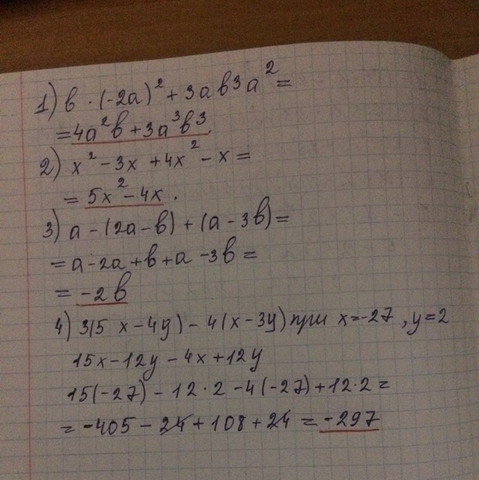 1) b · (-2a)² + 3ab3a² =
= 4a²b + 3a³b3
2) x² - 3x + 4x² - x =
= 5x² - 4x.
3) a - (2a - b) + (a - 3b) =
= a - 2a + b + a - 3b =
= -2b
4) 3(5x - 4y) - 4(x - 3y) при x = -27, y = 2
15x - 12y - 4x + 12y
15(-27) - 12 · 2 - 4(-27) + 12 · 2 =
= -405 - 24 + 108 + 24 = -297